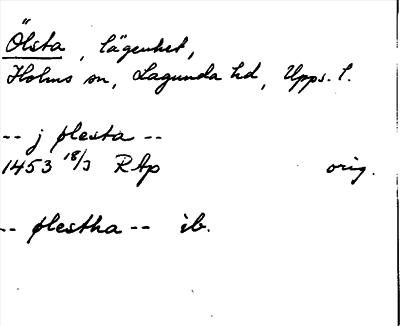 Ölsta, lägenhet,
Holms sn, Lagunda hd, Upps. l.
-- j ølesta --
1453 18/3 RAp orig.
-- ølestha -- ib.